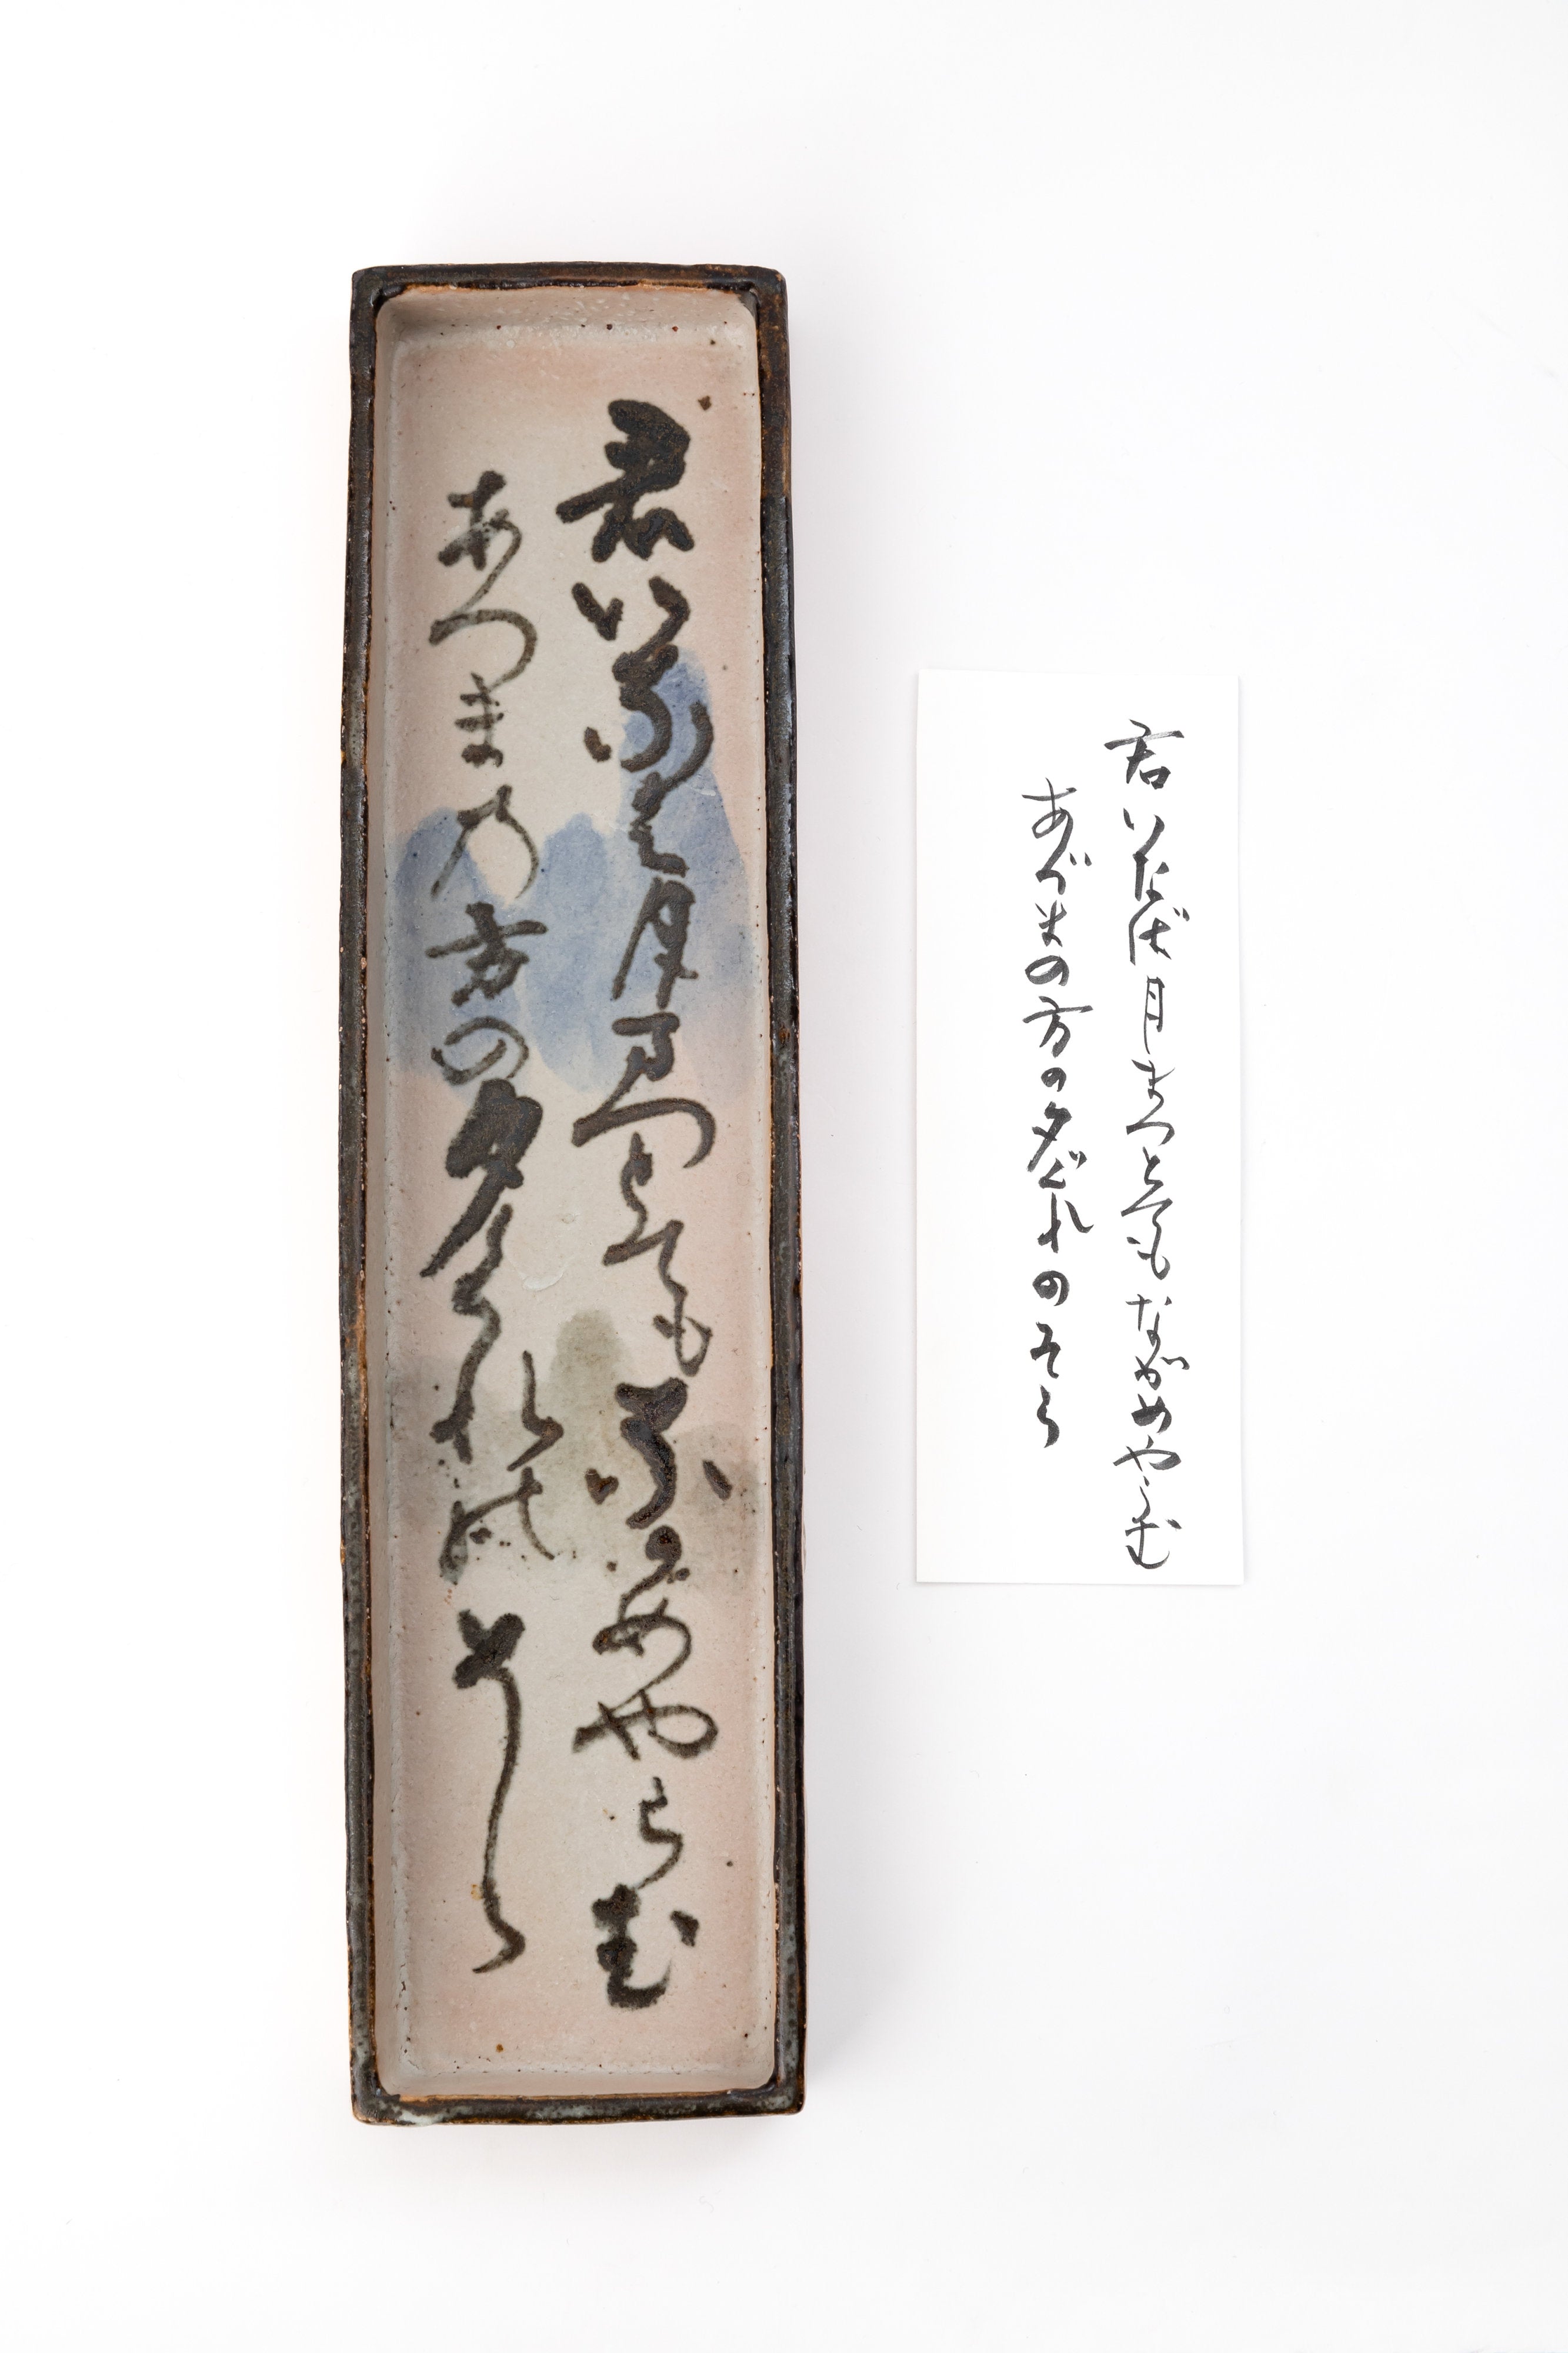 君いなは月まつとてもなかめやらむ
あつま乃方の夕くれのそら
君いなば月まつとてもながめやらむ
あづまの方の夕ぐれのそら